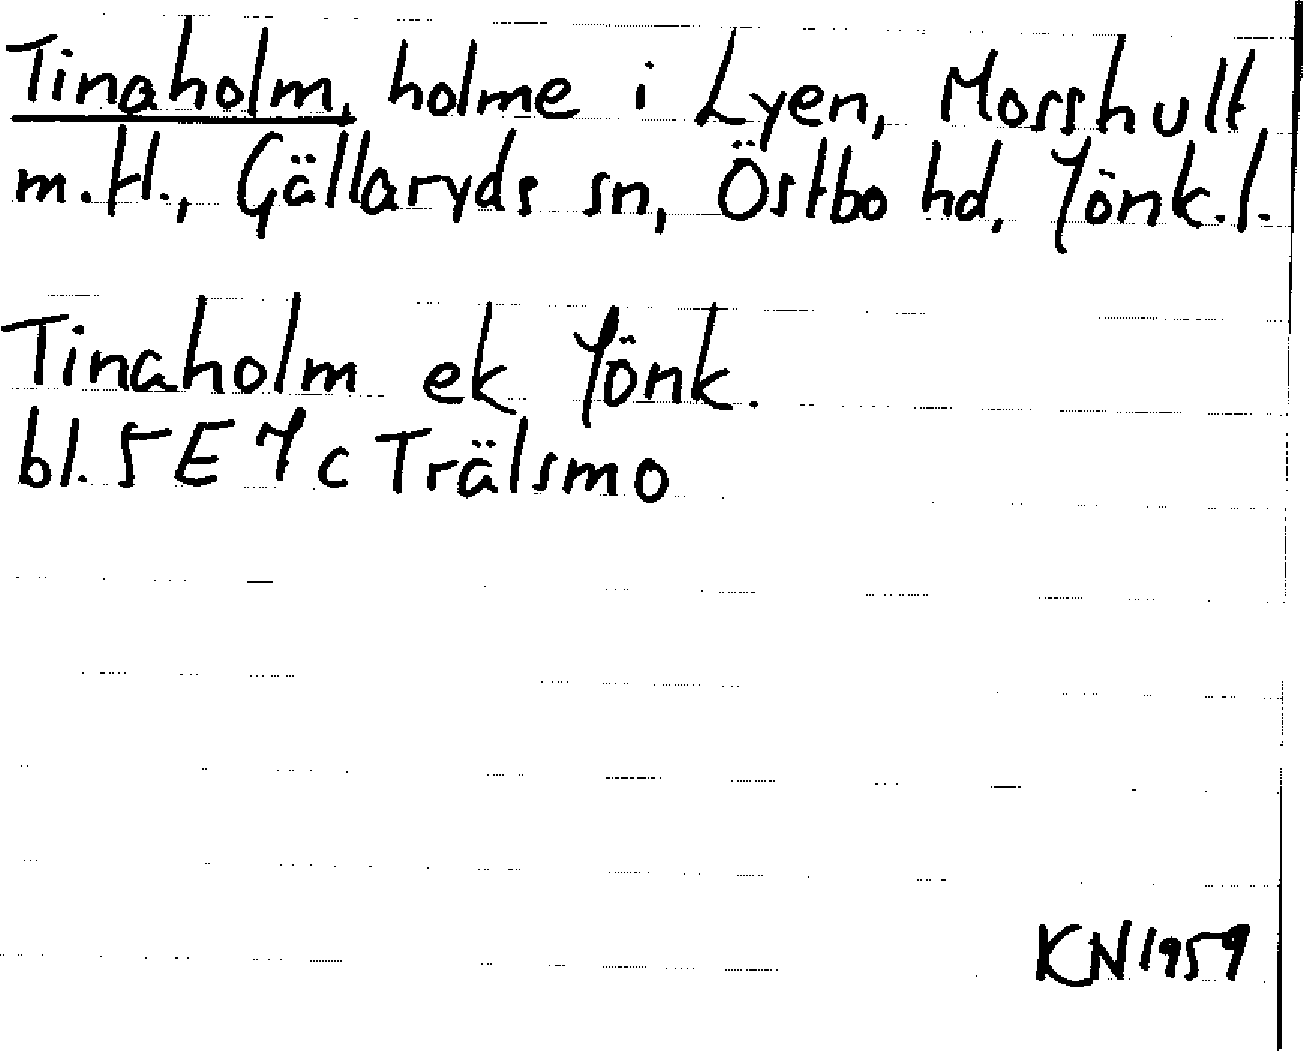 Tinaholm, holme i Lyen, Mosshult
m.fl., Gällaryds sn, Östbo hd, Jönk.l.
Tinaholm ek Jönk.
bl. 5 E 7 c Trälsmo
KN 1959